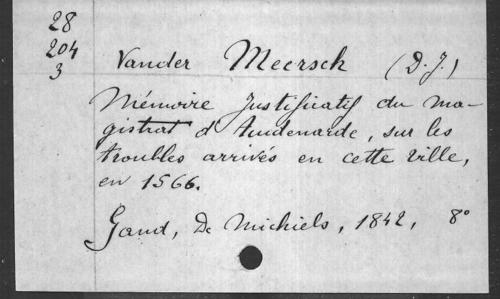 28
204
3
Vander Meersch (D. J.)
Mémoire justificatif du ma-
gistrat d'Audenarde, sur les
troubles arrivés en cette ville,
en 1566.
Gand, De Michiels, 1842, 8°